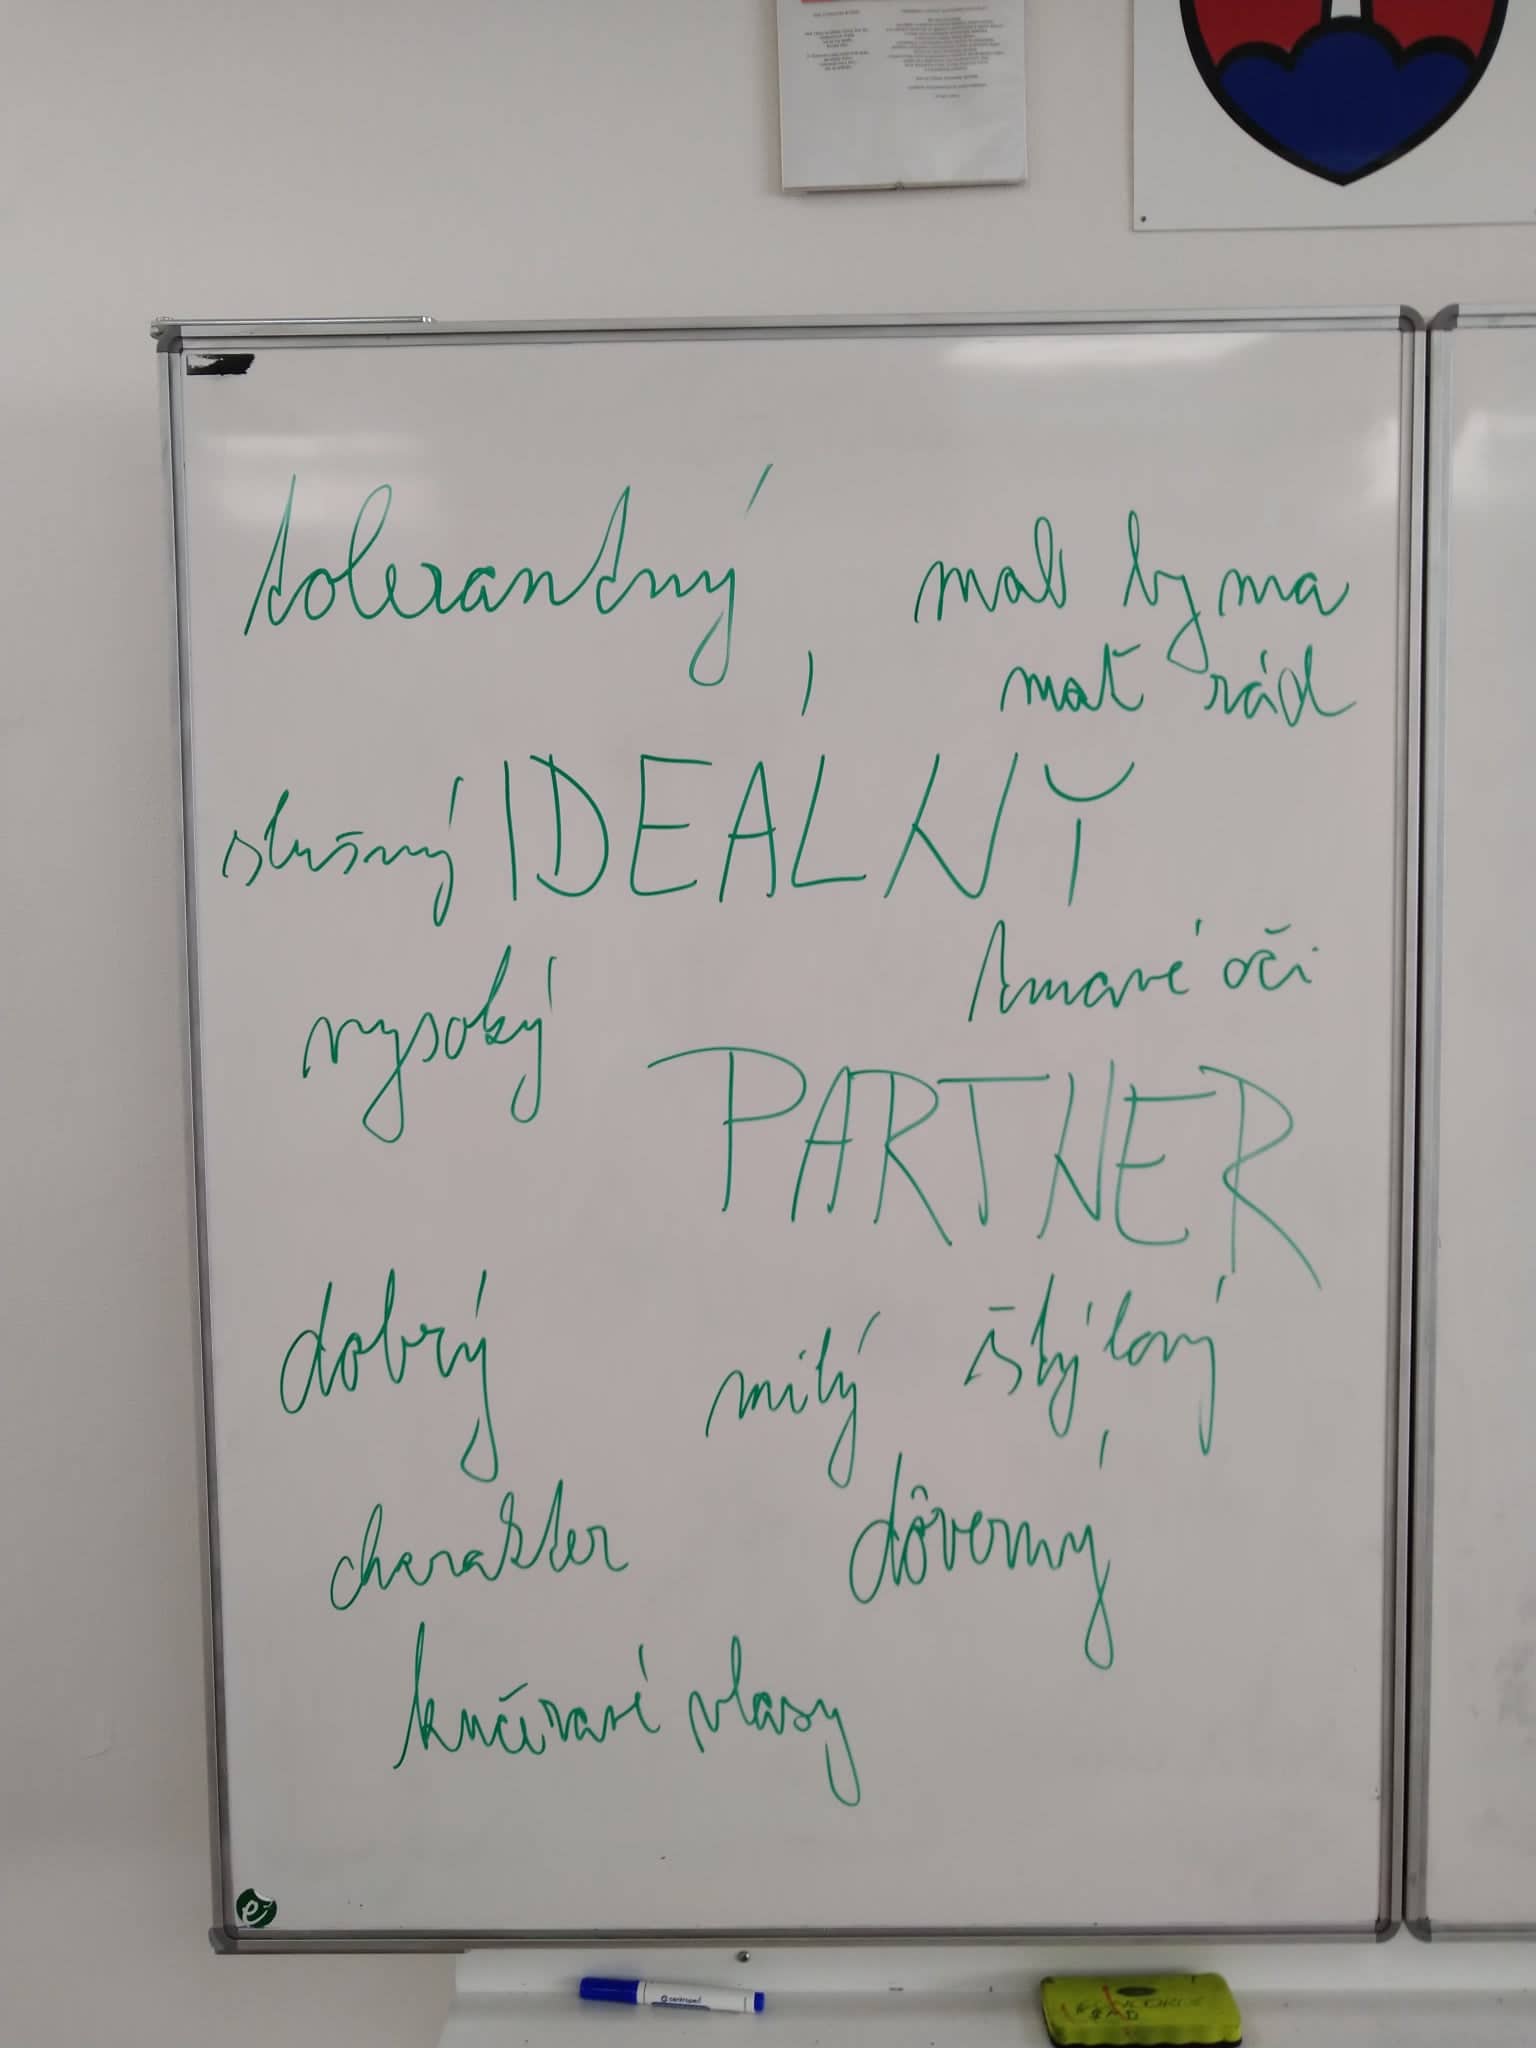 tolerantný
mal by ma
mať rád
slušný
IDEÁLNY
tmavé oči
vysoký
PARTNER
dobrý
milý
štýlový
charakter
dôverný
kučeravé vlasy
e
centropen